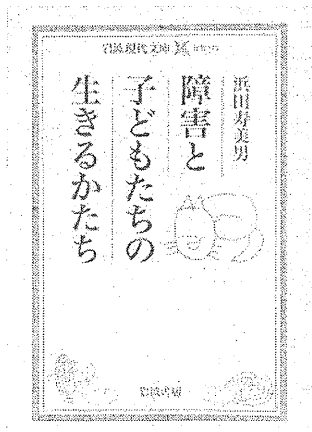 岩波現代文庫
浜田寿美男
障害と
子どもたちの
生きるかたち
岩波書店